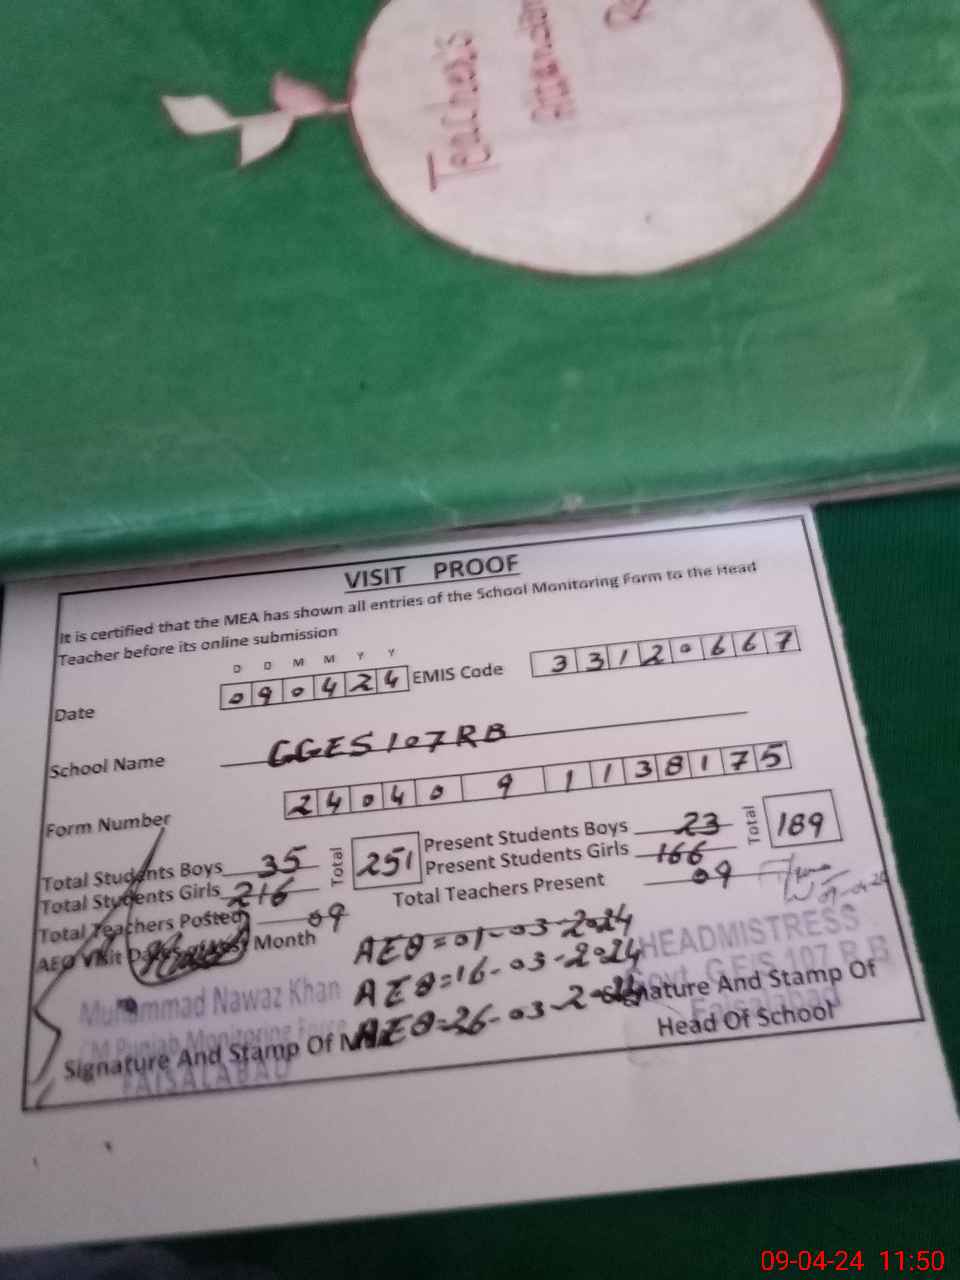 Teacher's
VISIT PROOF
It is certified that the MEA has shown all entries of the School Monitoring Form to the Head
Teacher before its online submission
D D M M Y Y
Date 090424 EMIS Code 33120667
School Name GGES 107 RB
Form Number 24040911138175
Total Students Boys 35 Total 251 Present Students Boys 23 Total 189
Total Students Girls 216 Present Students Girls 166
Total Teachers Posted 09 Total Teachers Present 09
AEO Visit Month
AEO=01-03-2024
AEO=16-03-2024
AEO=26-03-2024
Muhammad Nawaz Khan
CM Punjab Monitoring Force
FAISALABAD
Signature And Stamp Of
HEADMISTRESS
Govt. G.E/S 107 R.B
Faisalabad
Signature And Stamp Of
Head Of School
09-04-24 11:50